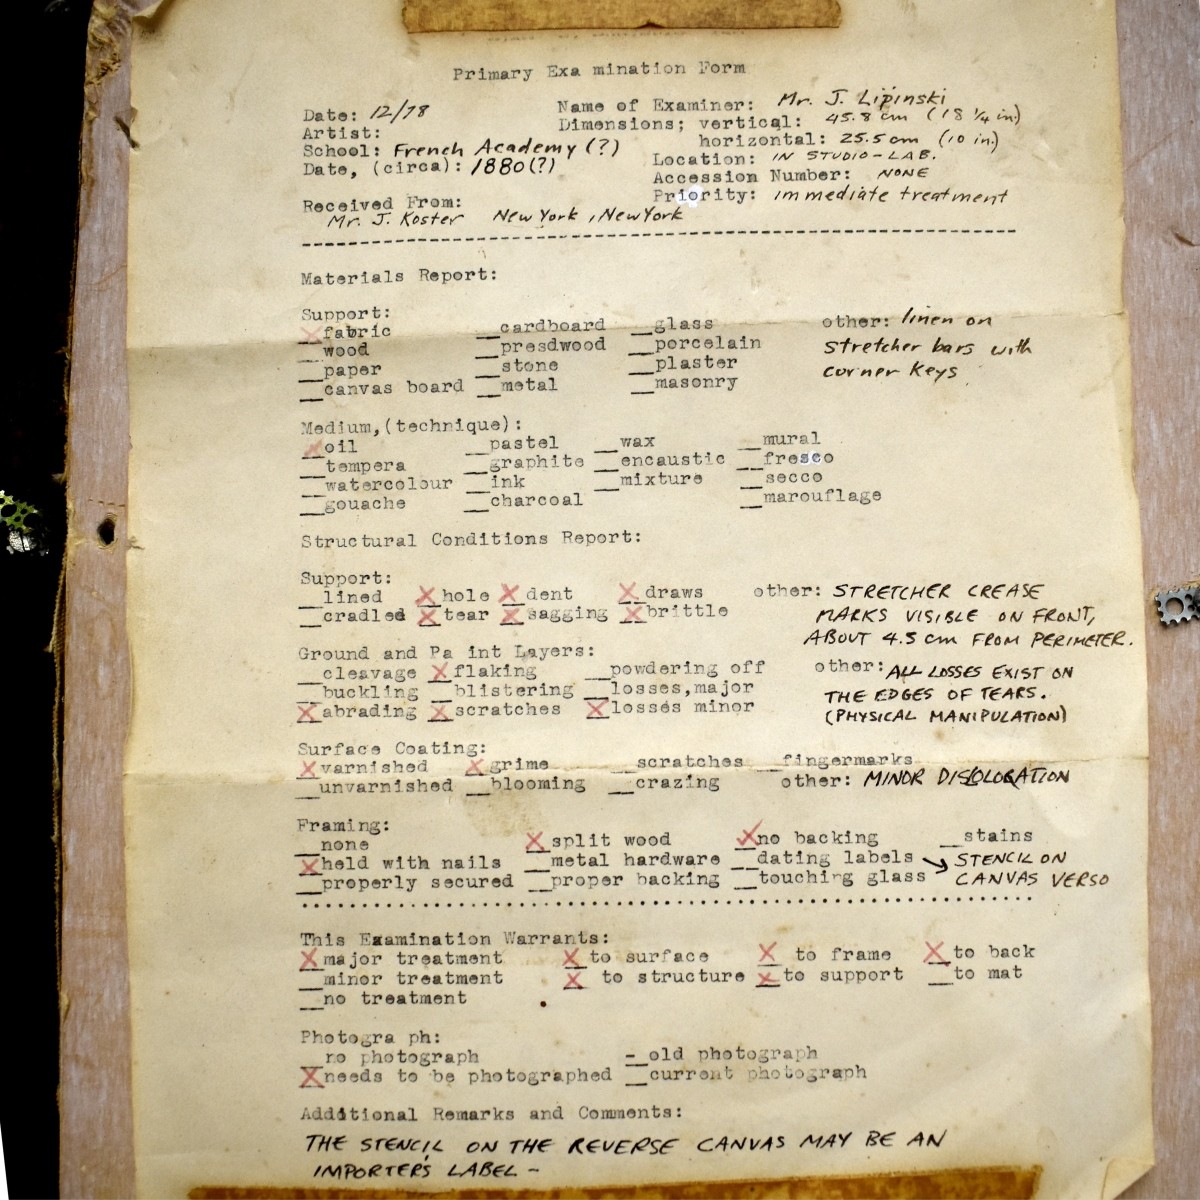 Primary Exa mination Form
Date: 12/78 Name of Examiner: Mr. J. Lipinski
Artist: Dimensions; vertical: 45.8 cm (18 1/4 in.)
School: French Academy (?) horizontal: 25.5 cm (10 in.)
Date, (circa): 1880(?) Location: IN STUDIO-LAB.
Accession Number: NONE
Received From: Priority: immediate treatment
Mr. J. Koster New York, New York
Materials Report:
Support:
X fabric __cardboard __glass other: linen on
__wood __presdwood __porcelain stretcher bars with
__paper __stone __plaster corner keys
__canvas board __metal __masonry
Medium,(technique):
X oil __pastel __wax __mural
__tempera __graphite __encaustic __fresco
__watercolour __ink __mixture __secco
__gouache __charcoal __marouflage
Structural Conditions Report:
Support:
__lined X hole X dent X draws other: STRETCHER CREASE
__cradled X tear X sagging X brittle MARKS VISIBLE ON FRONT,
ABOUT 4.5 cm FROM PERIMETER.
Ground and Pa int Layers:
__cleavage X flaking __powdering off other: ALL LOSSES EXIST ON
__buckling __blistering __losses,major THE EDGES OF TEARS.
X abrading X scratches X losses minor (PHYSICAL MANIPULATION)
Surface Coating:
X varnished X grime __scratches __fingermarks
__unvarnished __blooming __crazing other: MINOR
Framing:
__none X split wood X no backing __stains
X held with nails __metal hardware __dating labels → STENCIL ON
__properly secured __proper backing __touching glass CANVAS VERSO
This Examination Warrants:
X major treatment X to surface X to frame X to back
__minor treatment X to structure X to support __to mat
__no treatment
Photogra ph:
__no photograph __old photograph
X needs to be photographed __current photograph
Additional Remarks and Comments:
THE STENCIL ON THE REVERSE CANVAS MAY BE AN
IMPORTER'S LABEL -